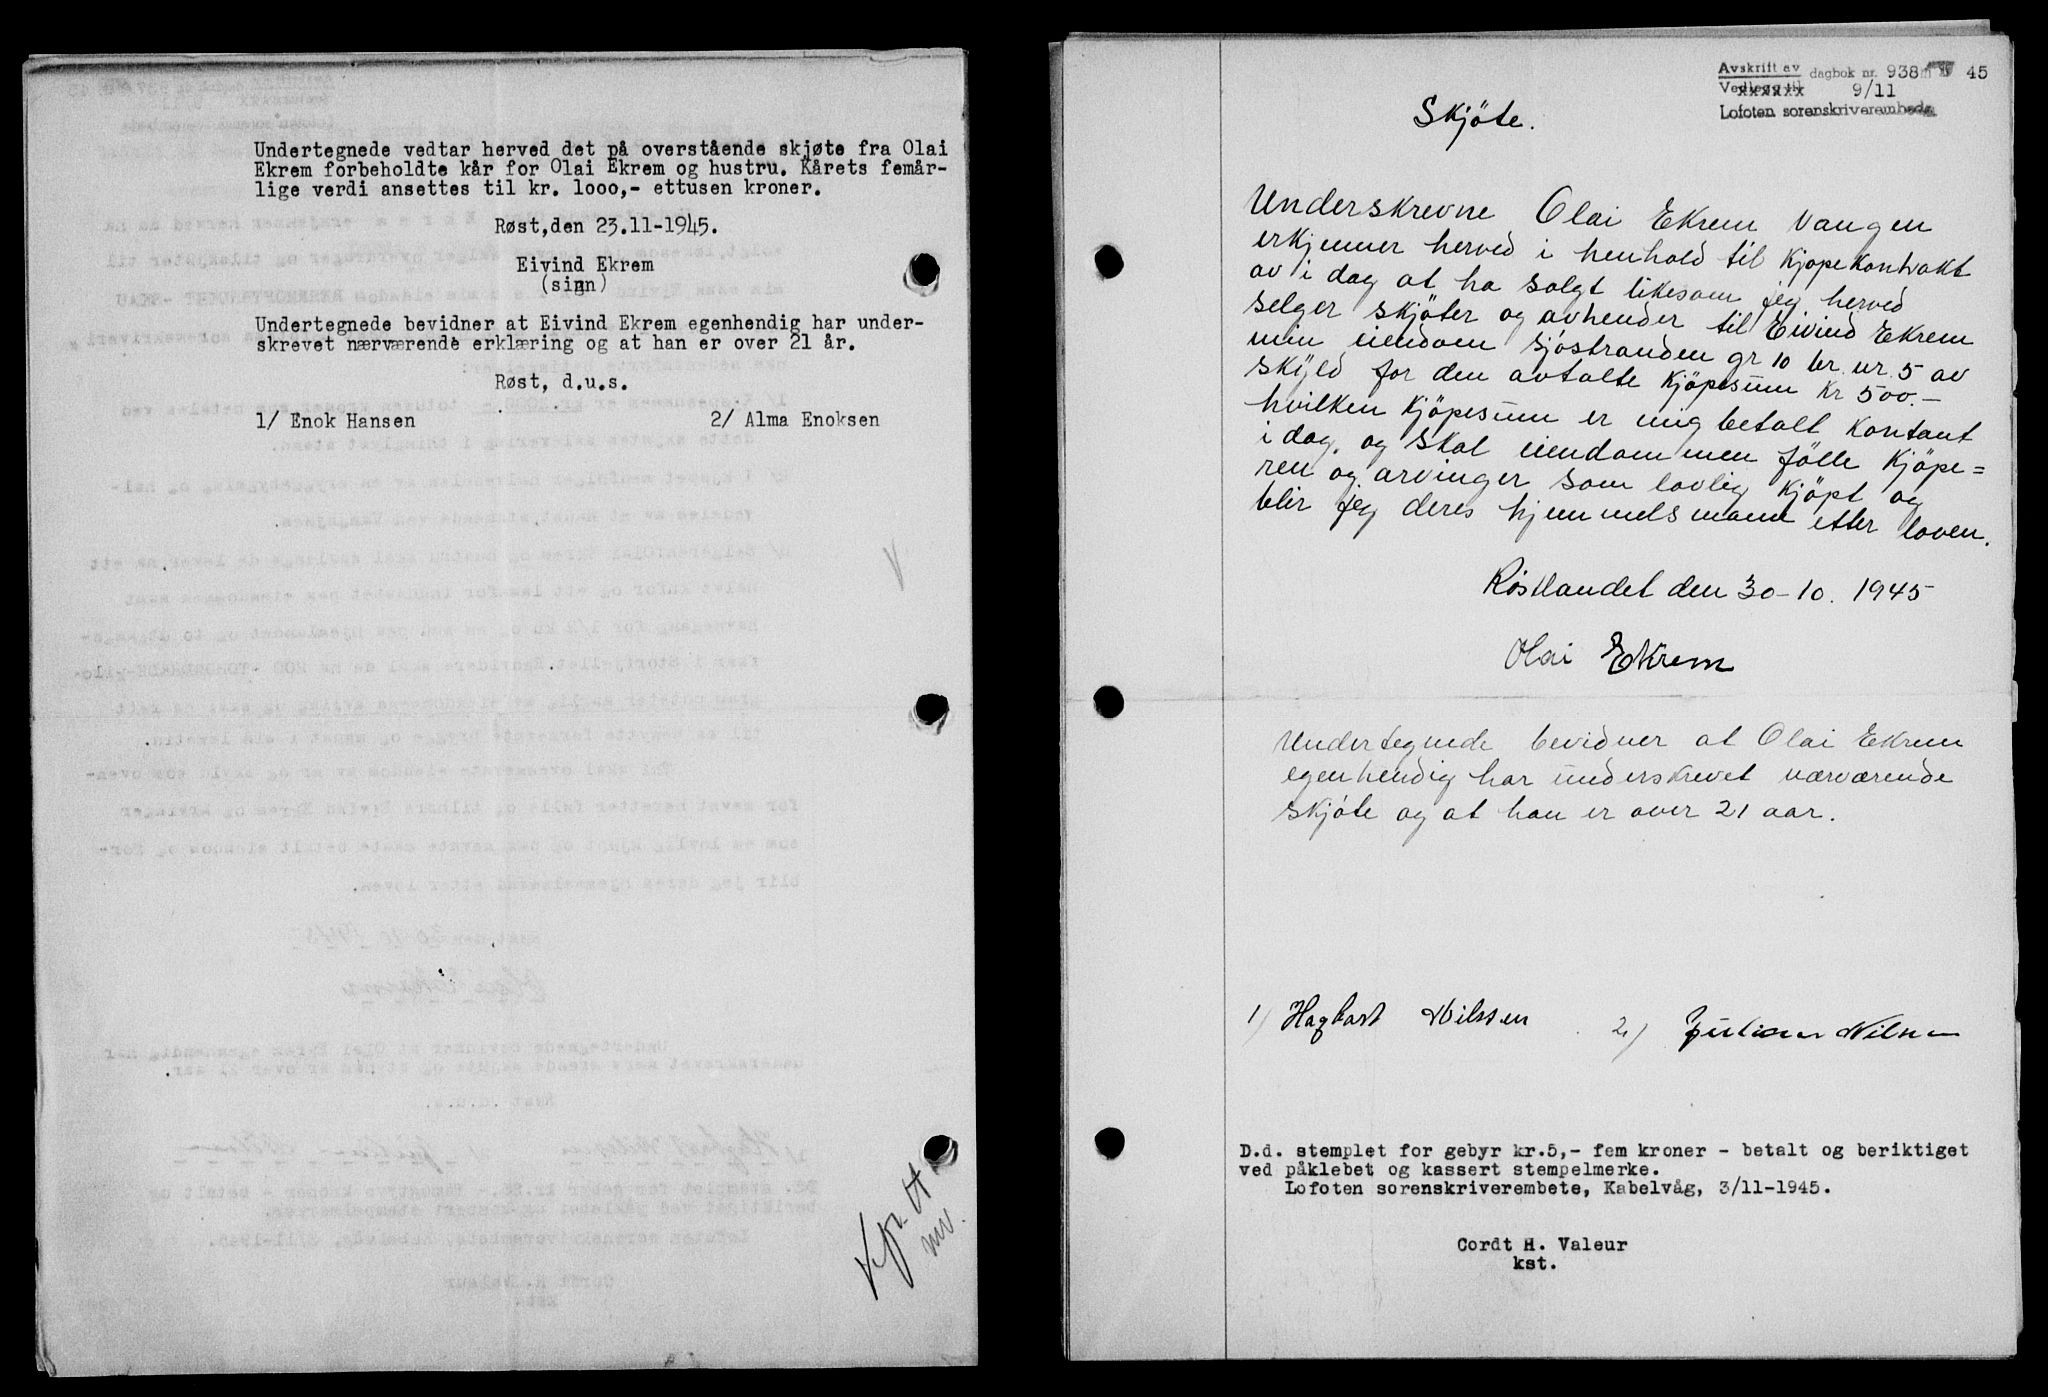 Undertegnede vedtar herved det på overstående skjøte fra Olai
Ekrem forbeholdte kår for Olai Ekrem og hustru. Kårets femår-
lige verdi ansettes til kr. 1000,- ettusen kroner.
Røst,den 23.11-1945.
Eivind Ekrem
(signn)
Undertegnede bevidner at Eivind Ekrem egenhendig har under-
skrevet nærværende erklæring og at han er over 21 år.
Røst, d.u.s.
1/ Enok Hansen 2/ Alma Enoksen
Avskrift av dagbok nr. 938 45
Vedlegg til 9/11
Lofoten sorenskriverembede
Skjöte.
Underskrevne Olai Ekrem Vangen
erkjenner herved i henhold til Kjøpekontrakt
av i dag at ha solgt likesom jeg herved
selger skjöter og avhender til Eivind Ekrem
min eiendom Sjöstranden gr 10 br. nr. 5 av
skyld for den avtalte Kjöpesum Kr 500.-
hvilken Kjöpesum er mig betalt Kontant
i dag. og skal eiendommen fölle Kjöpe=
ren og arvinger som lovlig Kjöpt og
blir jeg deres hjemmelsmann etter loven.
Röstlandet den 30-10. 1945
Olai Ekrem
Undertegnede bevidner at Olai Ekrem
egenhendig har underskrevet nærværende
skjöte og at han er over 21 aar.
1) Hagbart Nilssen 2)
D.d. stemplet for gebyr kr.5,- fem kroner - betalt og beriktiget
ved påklebet og kassert stempelmerke.
Lofoten sorenskriverembete, Kabelvåg, 3/11-1945.
Cordt H. Valeur
kst.